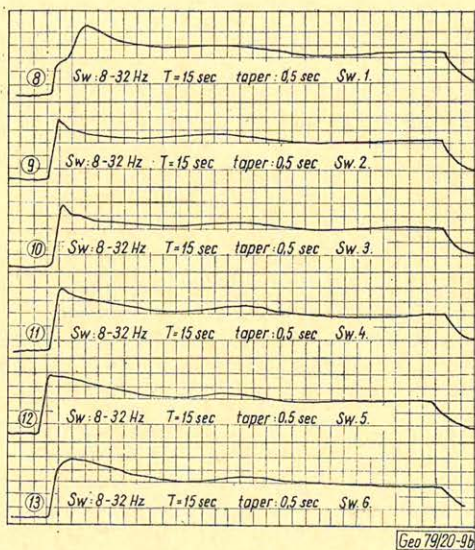 8 Sw: 8-32 Hz T=15 sec taper: 0,5 sec Sw. 1.
9 Sw: 8-32 Hz T=15 sec taper: 0,5 sec Sw. 2.
10 Sw: 8-32 Hz T=15 sec taper: 0,5 sec Sw. 3.
11 Sw: 8-32 Hz T=15 sec taper: 0,5 sec Sw. 4.
12 Sw: 8-32 Hz T=15 sec taper: 0.5 sec Sw. 5.
13 Sw: 8-32 Hz T=15 sec taper: 0,5 sec Sw. 6.
Geo 79/20-9b